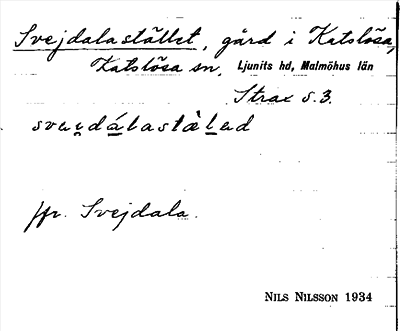 Svejdalastället, gård i Katslösa,
Katslösa sn, Ljunits hd, Malmöhus län
Strax S.3.
jfr. Svejdala.
NILS NILSSON 1934